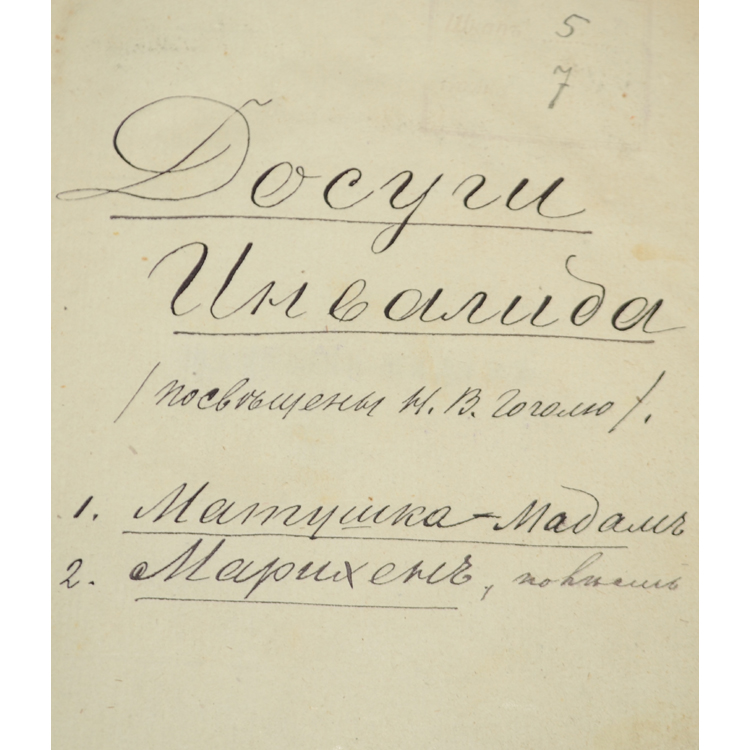 5
7
Досуги
Инвалида
/посвѣщены Н. В. Гоголю/.
1. Матушка-Мадамъ
2. Марихенъ, повѣсть